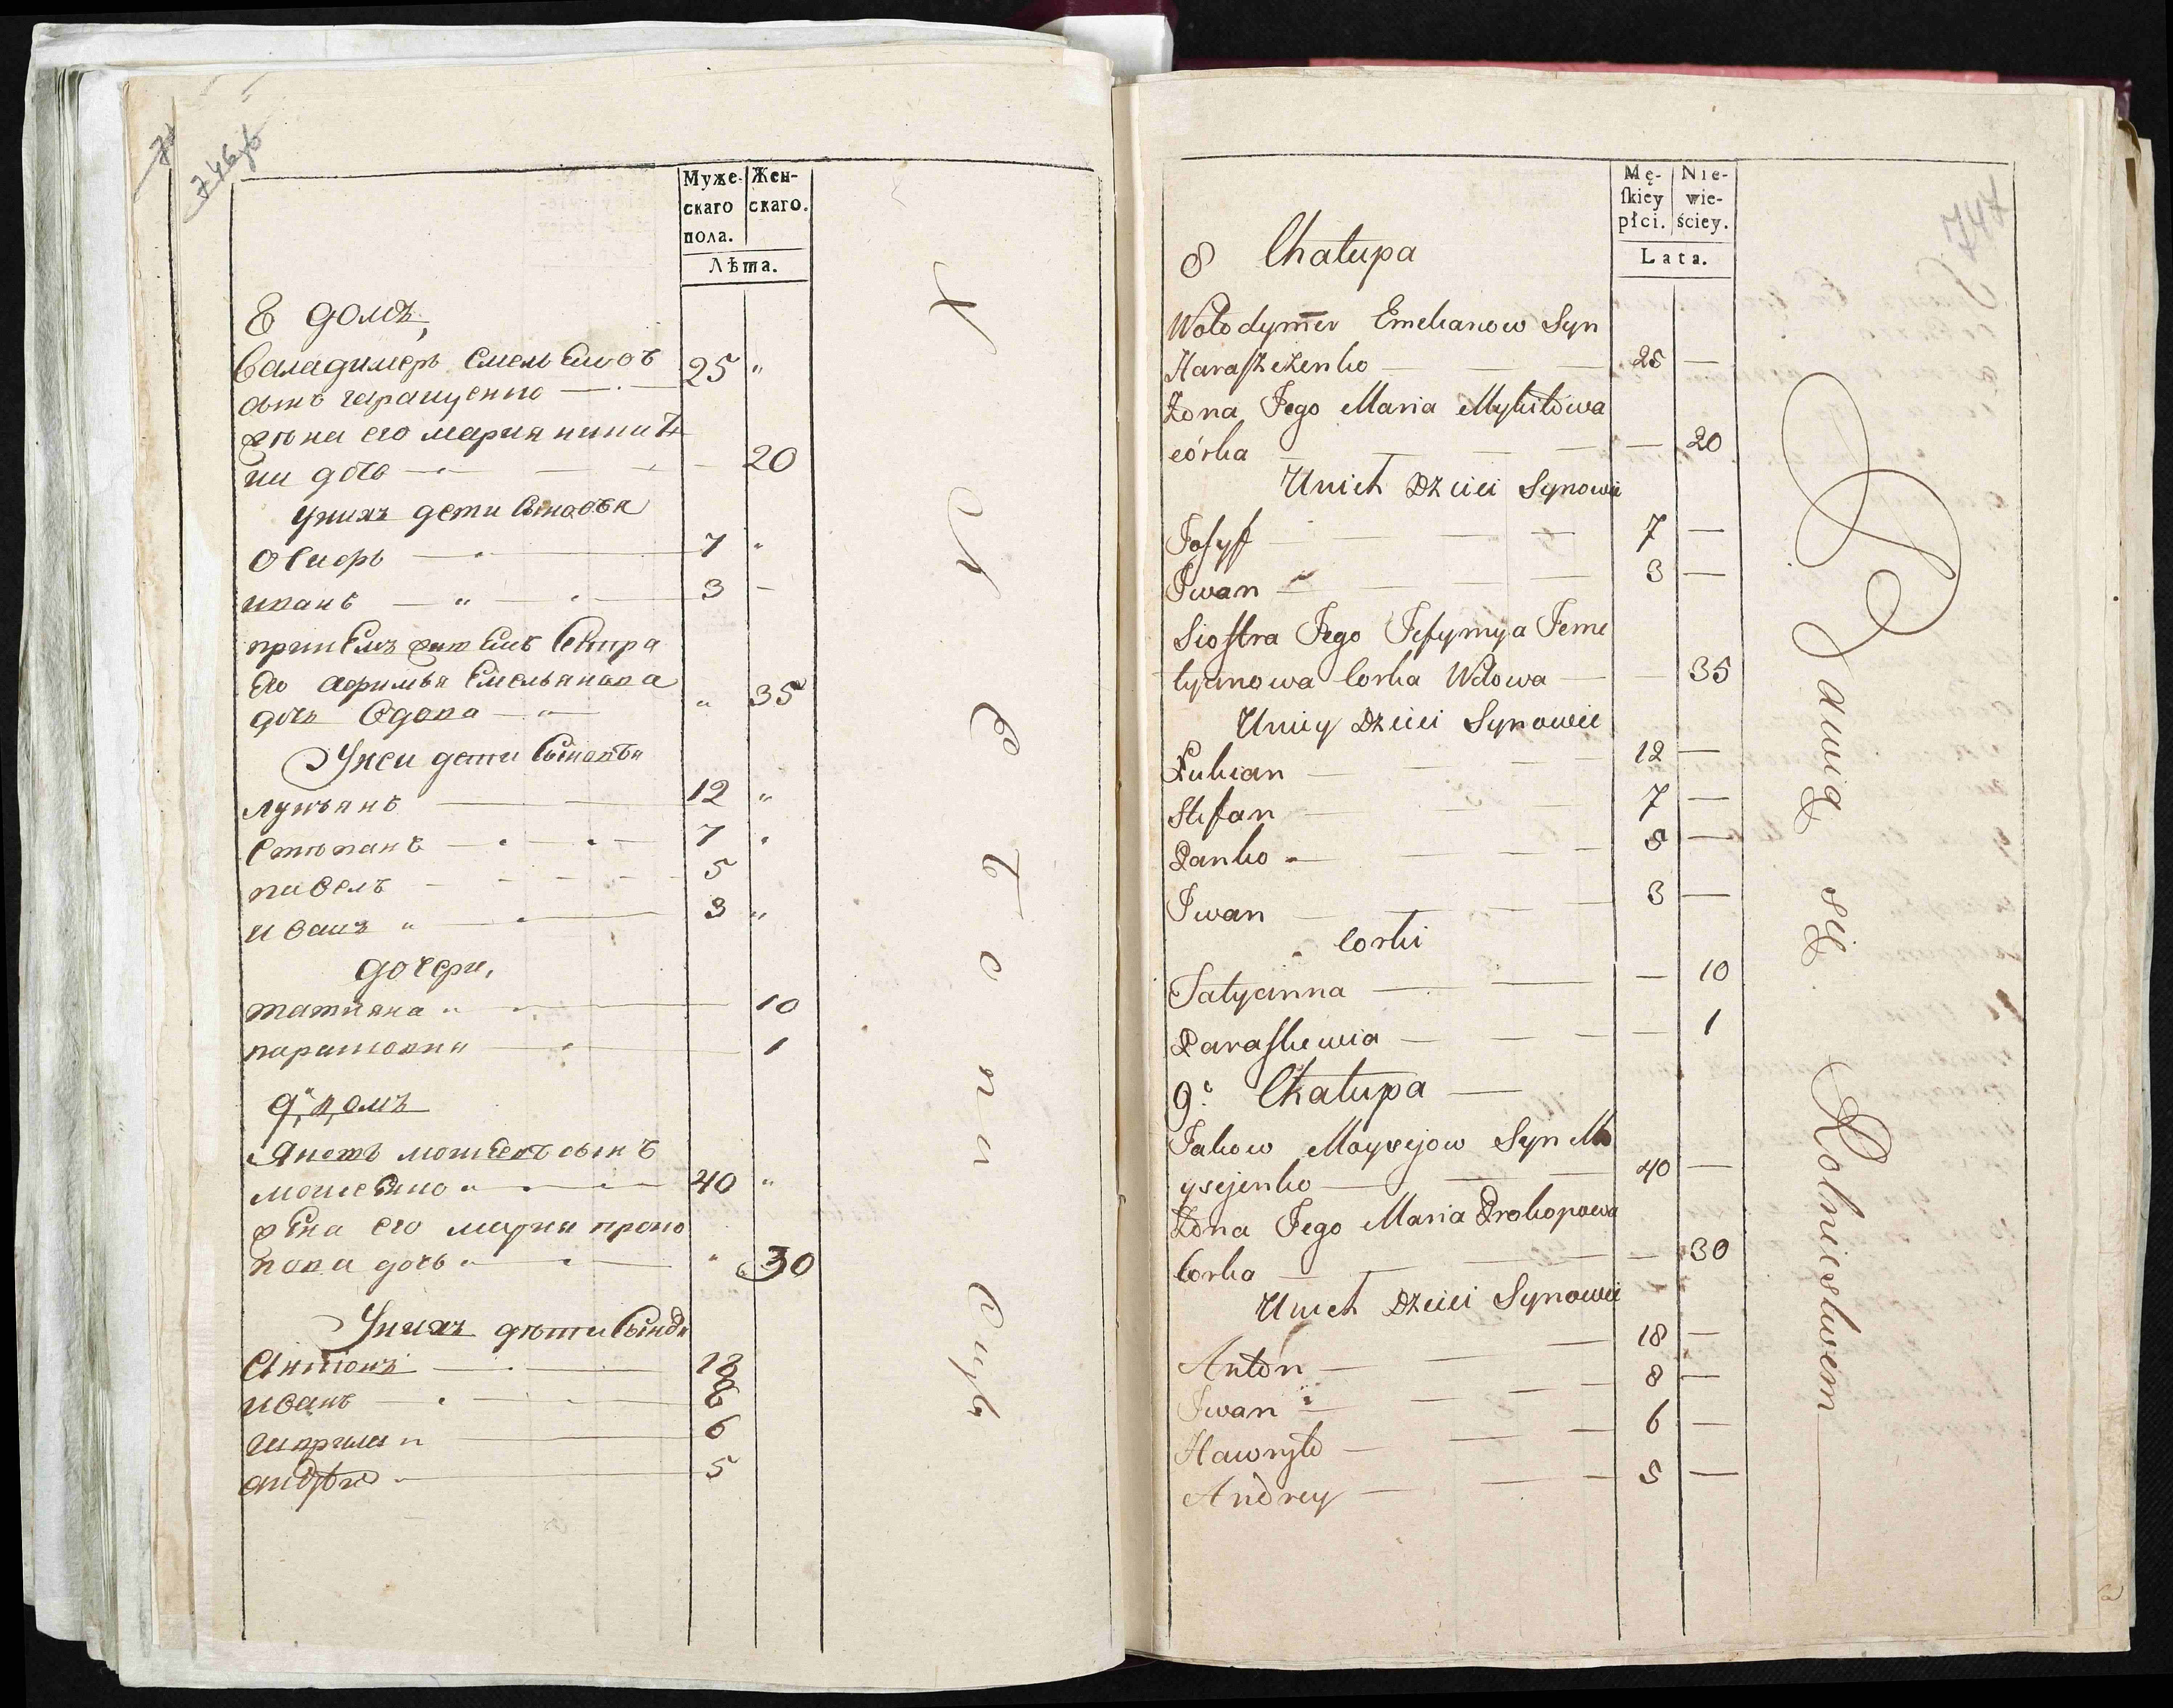 746об
Муже-скаго пола.
Жен-скаго.
Лѣта.
8 домъ,
Валадимеръ Емельеновъ
сынъ гаращенко 25 "
жена его мария никитѣ
на дочь 20
Унихъ дети Сыновья
Осифъ 7 "
иванъ 3 -
принемъ Сестра
Его Афимья Емельянова
дочь Вдова " 35
Унеи дети Сыновья
лукьянъ 12 "
Степанъ 7 "
павелъ 5
иванъ 3 "
дочери,
татияна 10
парасковия 1
9й домъ
Яковъ моисеевъ сынъ
моисеенко 40 "
жена его мария проко
пова дочь " 30
Унихъ дѣти Сыновья
Антонъ 18
иванъ 8
гаврила 6
андрей 5
747
Mę-ſkiey płci.
Nie-wie-ściey.
Lata.
8 Chałupa
Wołodymer Emelianow Syn
Haraſzczenko 25 —
Żona Jego Maria Mykitowa
córka — 20
Unich Dzieci Synowie
Joſyf 7 —
Iwan 3 —
Sioſtra Jego Jefymya Jeme
lyanowa Corka Wdowa — 35
Uniey Dzieci Synowie
Łukian 12 —
Stefan 7 —
Panko 5 —
Iwan 3 —
Corki
Tatyanna — 10
Paraſkewia — 1
9. Chałupa
Jakow Moysejow Syn Mo
ysejenko 40 —
Żona Jego Maria Prokopowa
Corka — 30
Unich Dzieci Synowie
Anton 18 —
Iwan 8 —
Hawryło 6 —
Andrey 5 —
Bawią się Rolnictwem